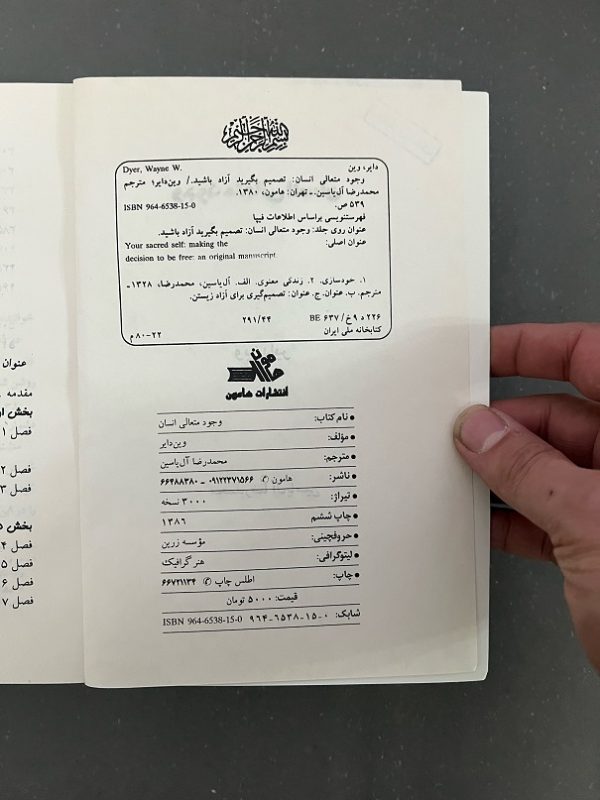 بسم الله الرحمن الرحیم
Dyer, Wayne W.
دایر، وین
وجود متعالی انسان: تصمیم بگیرید آزاد باشید./ وین‌دایر؛ مترجم
محمدرضا آل‌یاسین. ـ تهران: هامون، ۱۳۸۰.
۵۳۹ ص.
ISBN 964-6538-15-0
فهرستنویسی براساس اطلاعات فیپا
عنوان روی جلد: وجود متعالی انسان: تصمیم بگیرید آزاد باشید.
عنوان اصلی:
Your sacred self: making the
decision to be free: an original manuscript.
۱. خودسازی. ۲. زندگی معنوی. الف. آل‌یاسین، محمدرضا، ۱۳۲۸ـ
مترجم. ب. عنوان. ج. عنوان: تصمیم‌گیری برای آزاد زیستن.
۲۲۶ د ۹ خ/ ۶۳۷ BE
۲۹۱/۴۴
کتابخانه ملی ایران
۲۲-۸۰ م
هامون
انتشارات هامون
● نام کتاب: وجود متعالی انسان
● مؤلف: وین‌دایر
● مترجم: محمدرضا آل‌یاسین
● ناشر: هامون ✆ ۰۹۱۲۲۳۷۱۵۶۶ ـ ۶۶۴۸۸۳۸۰
● تیراژ: ۳۰۰۰ نسخه
● چاپ ششم ۱۳۸۶
● حروفچینی: مؤسسه زرین
● لیتوگرافی: هنر گرافیک
● چاپ: اطلس چاپ ✆ ۶۶۷۲۱۱۳۴
قیمت: ۵۰۰۰ تومان
شابک: ۰-۱۵-۶۵۳۸-۹۶۴ ISBN 964-6538-15-0
عنوان
مقدمه
بخش
فصل ۱
فصل ۲
فصل ۳
بخش
فصل ۴
فصل ۵
فصل ۶
فصل ۷